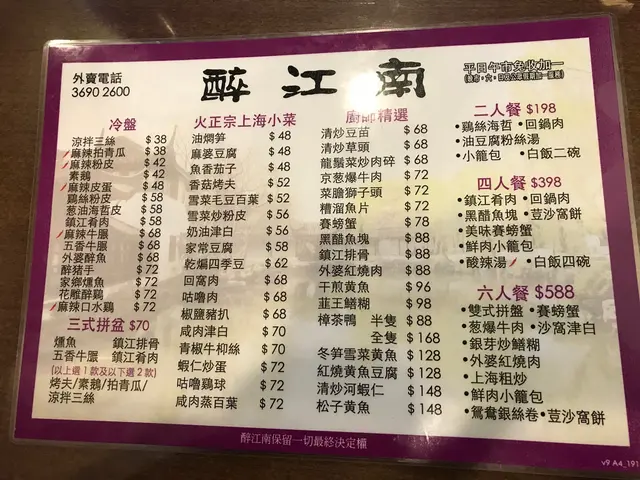 外賣電話
3690 2600
醉江南
平日午市免收加一
冷盤
涼拌三絲 $ 38
麻辣拍青瓜 $ 38
麻辣粉皮 $ 42
素鵝 $ 42
麻辣皮蛋 $ 48
鷄絲粉皮 $ 58
葱油海哲皮 $ 58
鎮江肴肉 $ 58
麻辣牛脤 $ 68
五香牛脤 $ 68
外婆醉魚 $ 68
醉豬手 $ 72
家鄉燻魚 $ 72
花雕醉鷄 $ 72
麻辣口水鷄 $ 72
三式拼盆 $70
燻魚 鎮江排骨
五香牛脤 鎮江肴肉
(以上選1款及以下選2款)
烤夫/素鵝/拍青瓜/
涼拌三絲
火正宗上海小菜
油燜笋 $ 48
麻婆豆腐 $ 48
魚香茄子 $ 48
香菇烤夫 $ 52
雪菜毛豆百葉 $ 52
雪菜炒粉皮 $ 56
奶油津白 $ 56
家常豆腐 $ 58
乾煸四季豆 $ 62
回窩肉 $ 68
咕嚕肉 $ 68
椒鹽豬扒 $ 68
咸肉津白 $ 70
青椒牛柳絲 $ 70
蝦仁炒蛋 $ 72
咕嚕鷄球 $ 72
咸肉蒸百葉 $ 72
廚師精選
清炒豆苗 $ 68
清炒草頭 $ 68
龍鬚菜炒肉碎 $ 68
京葱爆牛肉 $ 72
菜膽獅子頭 $ 72
糟溜魚片 $ 72
賽螃蟹 $ 78
黑醋魚塊 $ 88
鎮江排骨 $ 88
外婆紅燒肉 $ 88
干煎黃魚 $ 96
韮王鱔糊 $ 98
樟茶鴨 半隻 $ 88
全隻 $ 168
冬笋雪菜黃魚 $ 128
紅燒黃魚豆腐 $ 128
清炒河蝦仁 $ 148
松子黃魚 $ 148
二人餐 $198
•鷄絲海哲 •回鍋肉
•油豆腐粉絲湯
•小籠包 •白飯二碗
四人餐 $398
•鎮江肴肉 •回鍋肉
•黑醋魚塊 •荳沙窩餅
•美味賽螃蟹
•鮮肉小籠包
•酸辣湯 •白飯四碗
六人餐 $588
•雙式拼盤 •賽螃蟹
•葱爆牛肉 •沙窩津白
•銀芽炒鱔糊
•外婆紅燒肉
•上海粗炒
•鮮肉小籠包
•鴛鴦銀絲卷 •荳沙窩餅
醉江南保留一切最終決定權
v9 A4_191